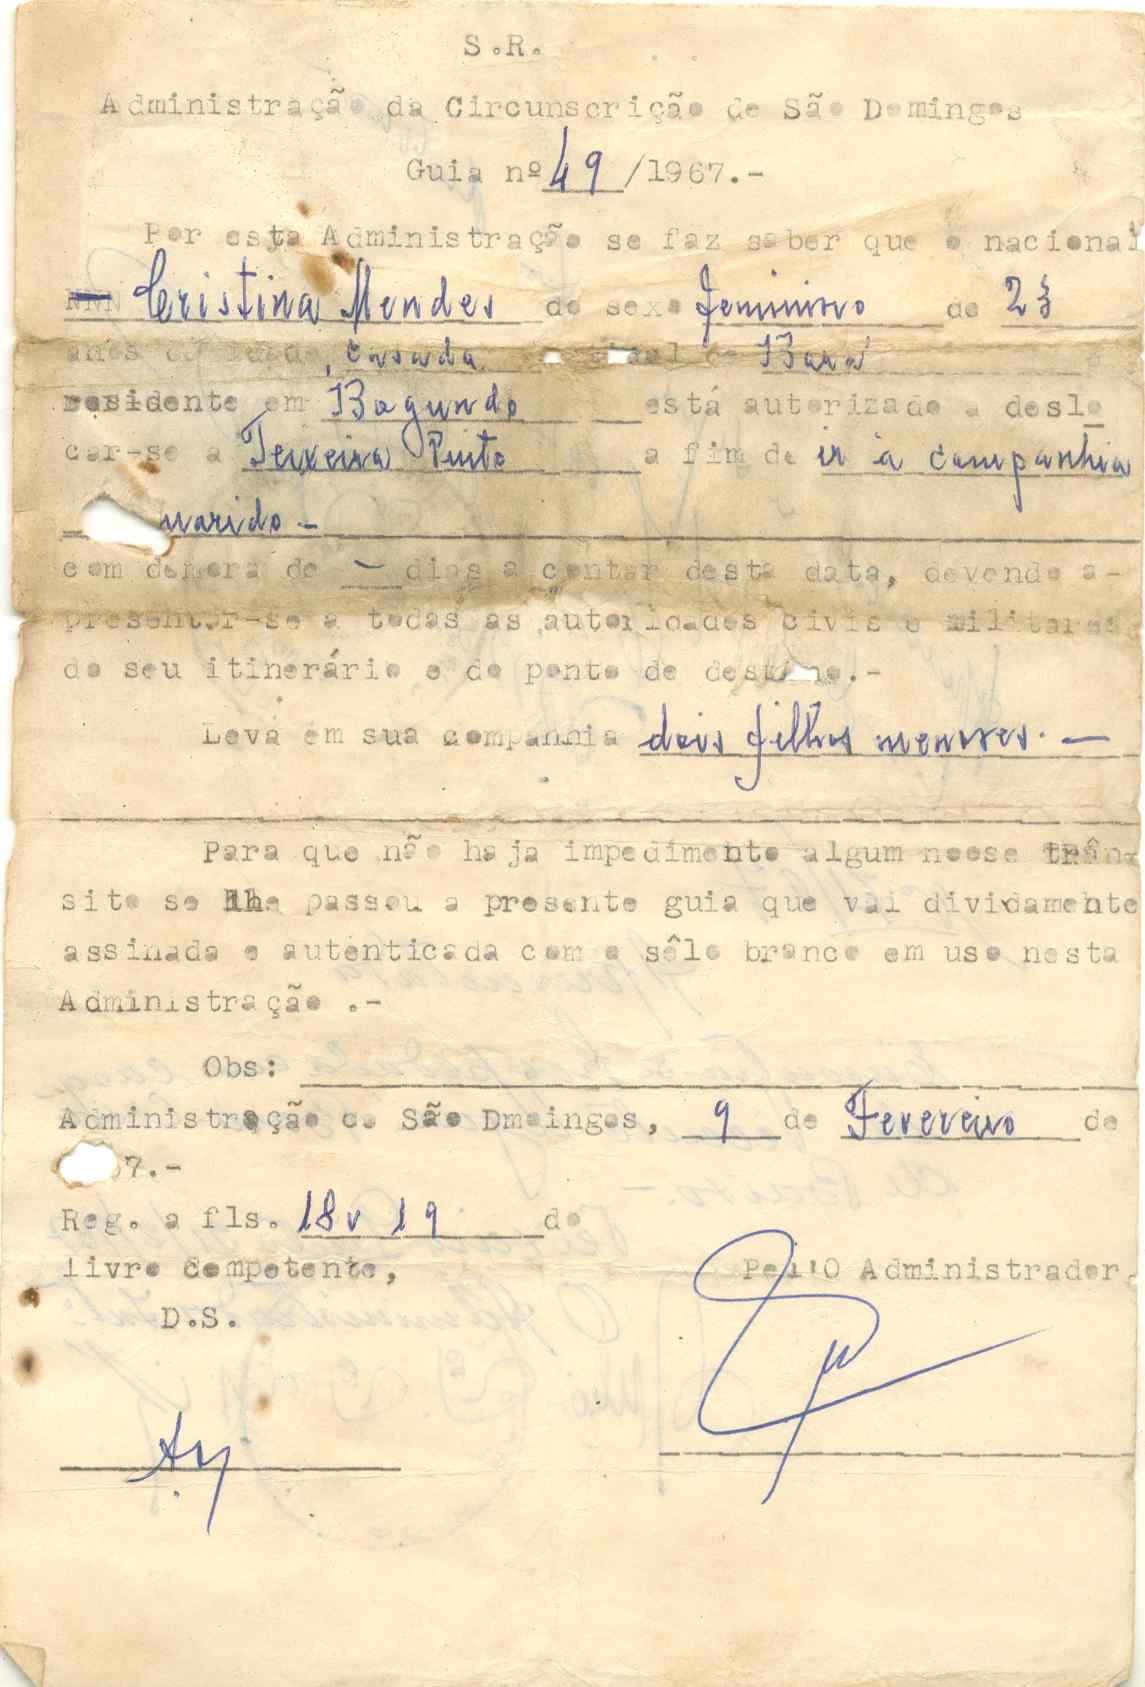 S.R.
Administração da Circunscrição de São Domingos
Guia nº 49 /1967.-
Por esta Administração se faz saber que o nacional
Cristina Mendes do sexo feminino de 23
anos de idade, casada de Bará e
residente em Bagundo está autorizado a deslo
car-se a Teixeira Pinto a fim de ir à companhia
marido -
com demora de - dias a contar desta data, devendo a-
presentar-se a todas as autoridades civis e militares
do seu itinerário e do ponto de destino.-
Leva em sua companhia dois filhos menores. -
Para que não haja impedimento algum neese trân
sito se lhe passou a presente guia que vai dividamente
assinada e autenticada com o sêlo branco em uso nesta
Administração .-
Obs:
Administração de São Dmoingos, 9 de Fevereiro de
67.-
Reg. a fls. 18 v 19 do
livro competente,
Pel'O Administrador,
D.S.